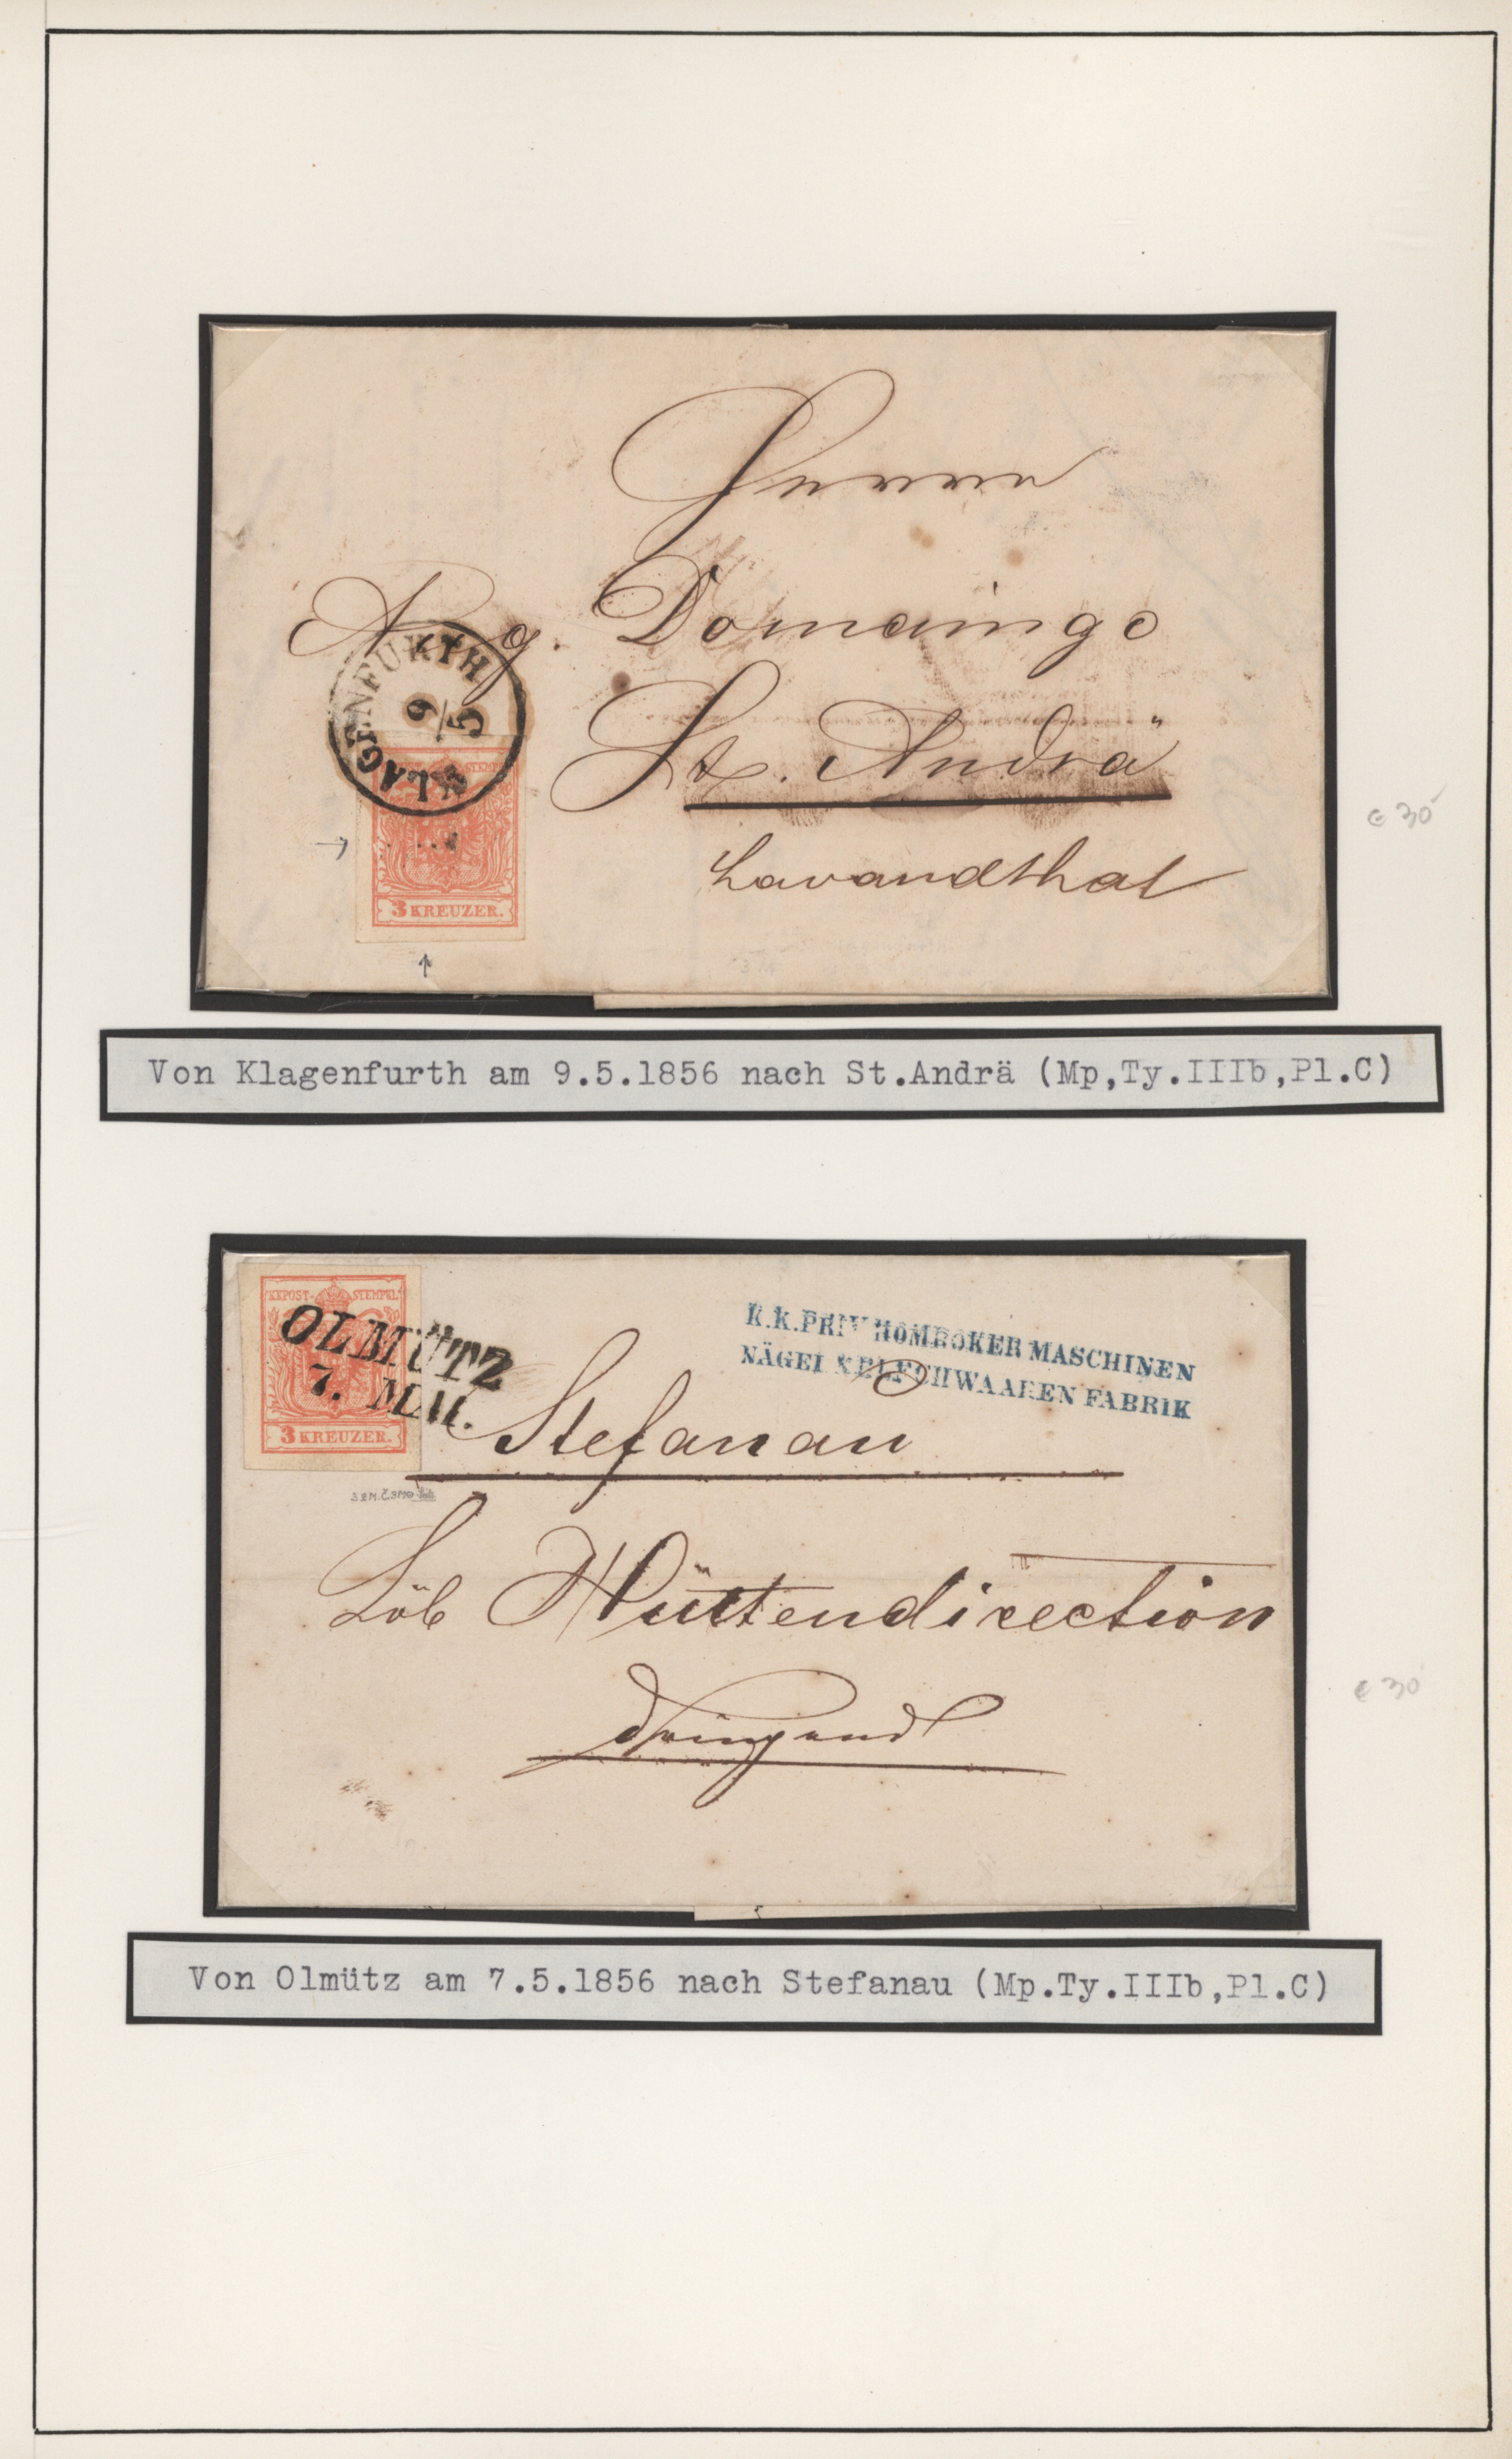 Herrn
A g. Domaingo
St. Andrä
Lavandthal
KLAGENFURTH
9/5
KKPOST-STEMPEL
3 KREUZER.
€ 30
Von Klagenfurth am 9.5.1856 nach St.Andrä (Mp,Ty.IIIb,Pl.C)
KKPOST-STEMPEL
OLMÜTZ
7. MAI.
3 KREUZER.
K.K.PRIV HOMBOKER MASCHINEN
NÄGEL &BLECHWAAREN FABRIK
Stefanau
Löb Hüttendirection
dringend
€ 30
Von Olmütz am 7.5.1856 nach Stefanau (Mp.Ty.IIIb,Pl.C)